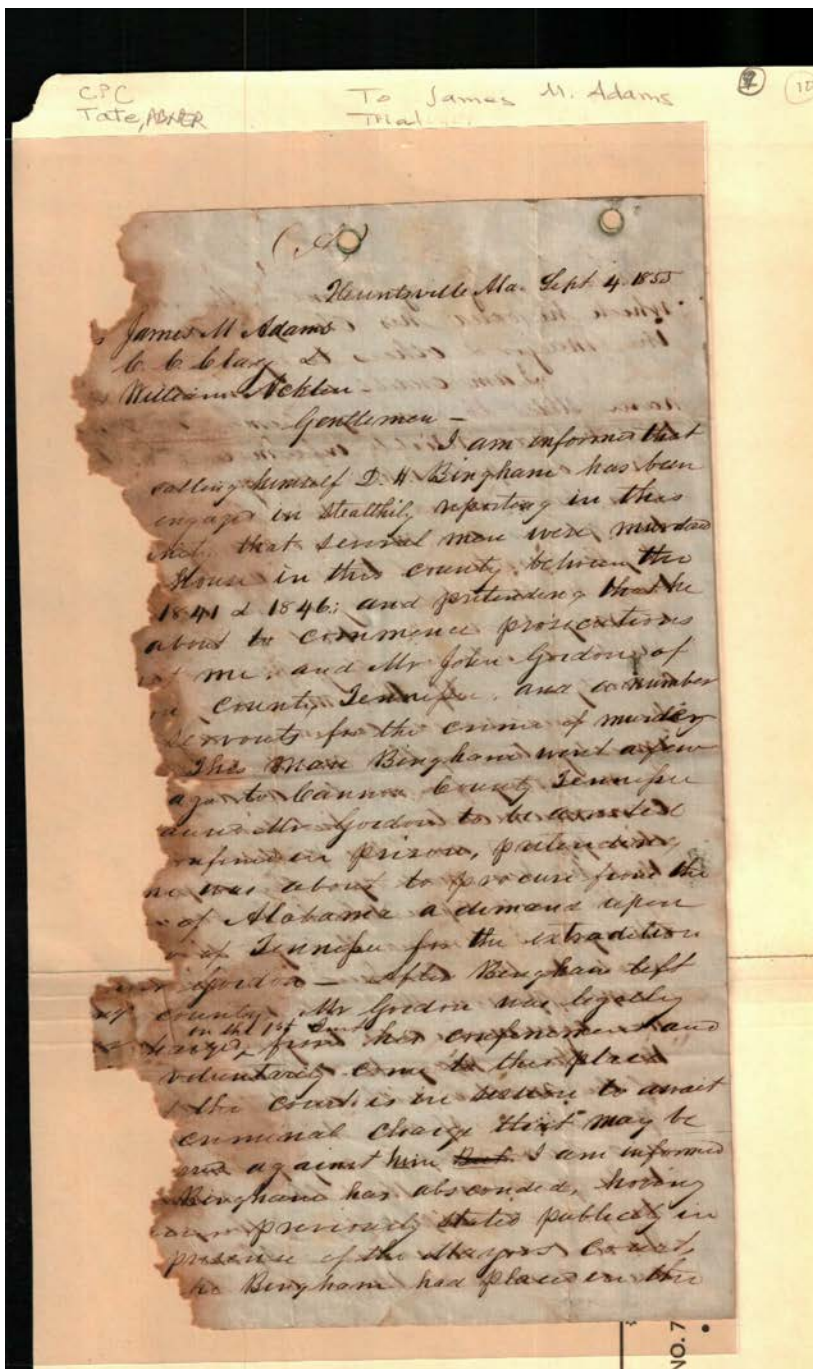 CPC
Tate, ABNER
To James M. Adams
Trial
10
(A)
Huntsville Ala. Sept. 4. 1855
James M Adams
C. C. Clay &
William Acklen
Gentlemen —
I am informed that
calling himself D. H Bingham has been
engaged in stealthily reporting in this
that several men were murdered
House in this county between the
1841 & 1846; and pretending that he
about to commence prosecutions
me, and Mr John Gordon of
County Tennessee, and a number
servants for the crime of murder
This man Bingham went a few
ago to Cannon County Tennessee
Mr Gordon to be arrested
in prison, pretending
he was about to procure from the
of Alabama a demand upon
of Tennessee for the extradition
Gordon — After Bingham left
county, Mr Gordon was legally
on the 1st Inst
from his confinement and
voluntarily come to this place
the court is in session to await
criminal charge that may be
against him But I am informed
Bingham has absconded, having
previously stated publicly in
presence of the Mayors Court,
he Bingham had placed in the
NO. 7